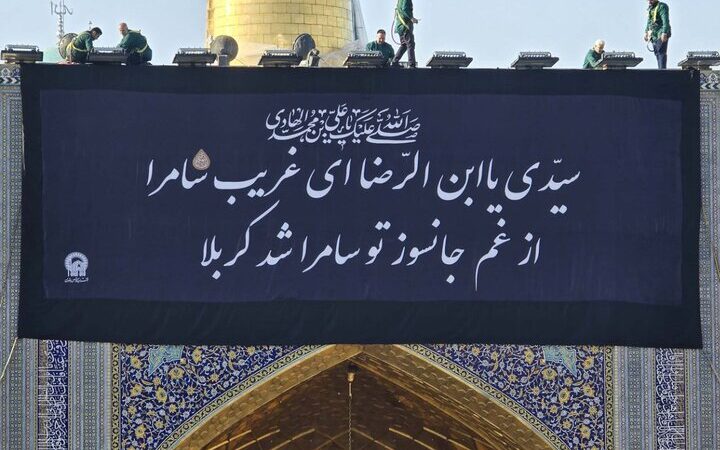 صلی الله علیک یا علی بن محمد الهادی
سیّدی یا ابن الرّضا ای غریب سامرا
از غم جانسوز تو سامرا شد کربلا